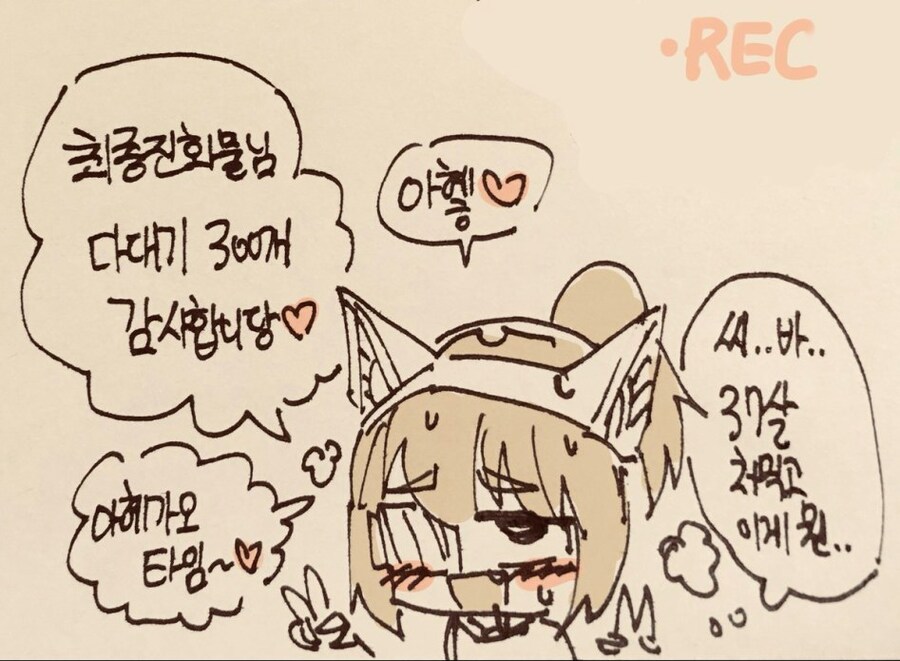 •REC
최종진화물님
다대기 300개
감사합니당♡
아헹♡
아헤가오
타임~♡
씨..바..
37살
처먹고
이게 뭔..